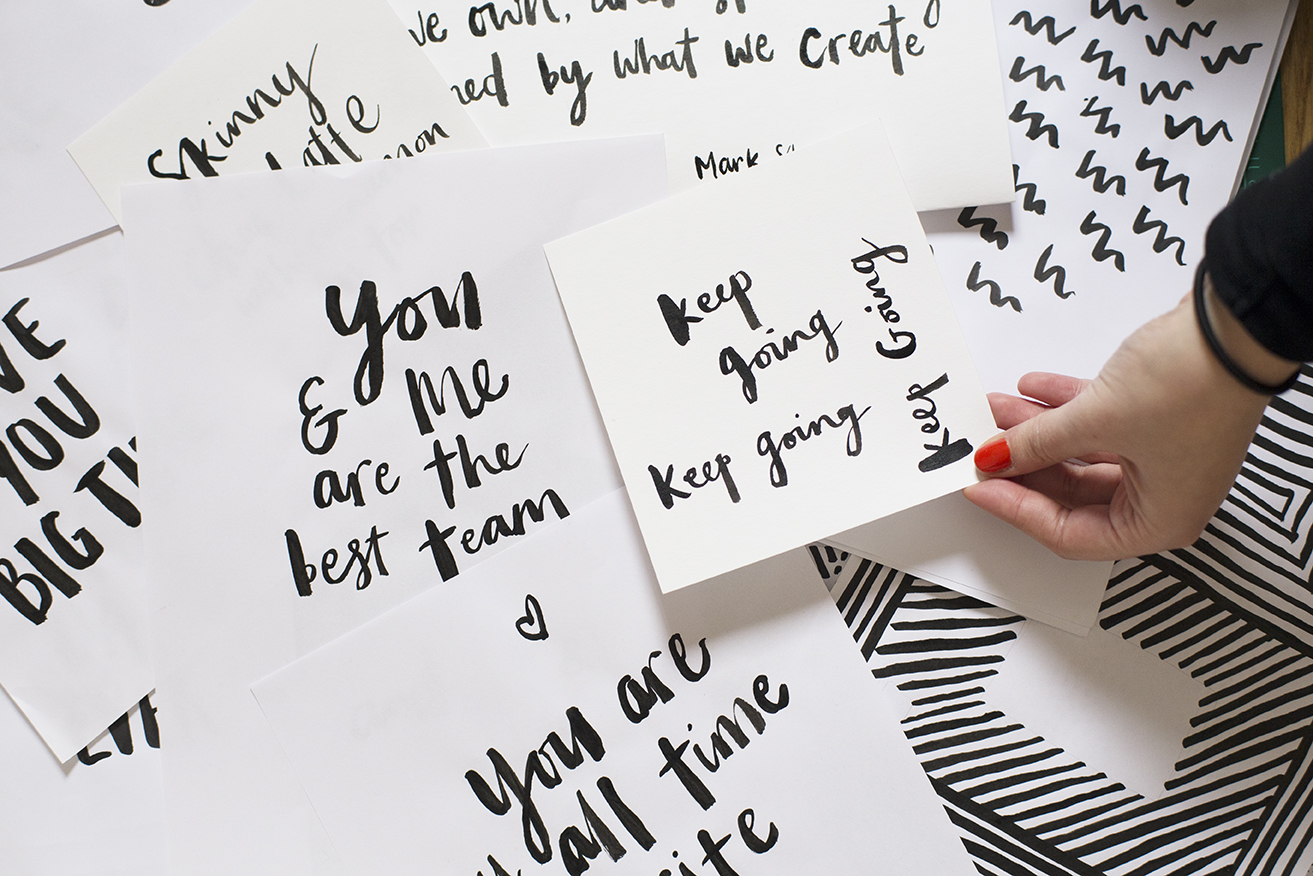 we own, and
by what we create
Mark
Skinny
latte
YOU
BIG
You
& Me
are the
best team
keep
going
keep going
Keep Going
You are
all time